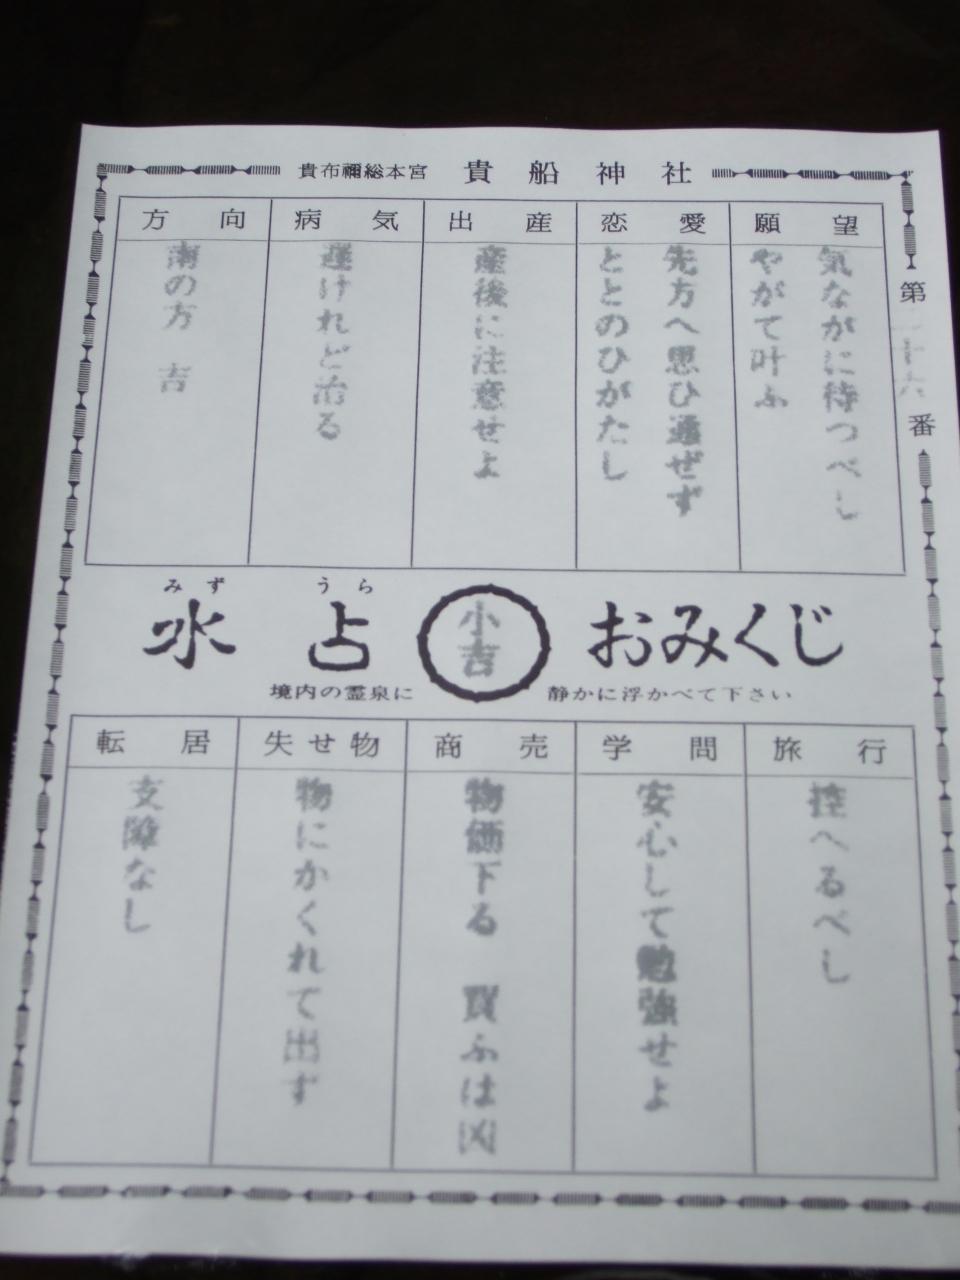 貴布禰総本宮 貴船神社
第二十六番
願望
気ながに待つべし
やがて叶ふ
恋愛
先方へ思ひ通ぜず
ととのひがたし
出産
産後に注意せよ
病気
遅けれど治る
方向
南の方 吉
みず うら
水占 小吉 おみくじ
境内の霊泉に 静かに浮かべて下さい
旅行
控へるべし
学問
安心して勉強せよ
商売
物価下る 買ふは凶
失せ物
物にかくれて出ず
転居
支障なし